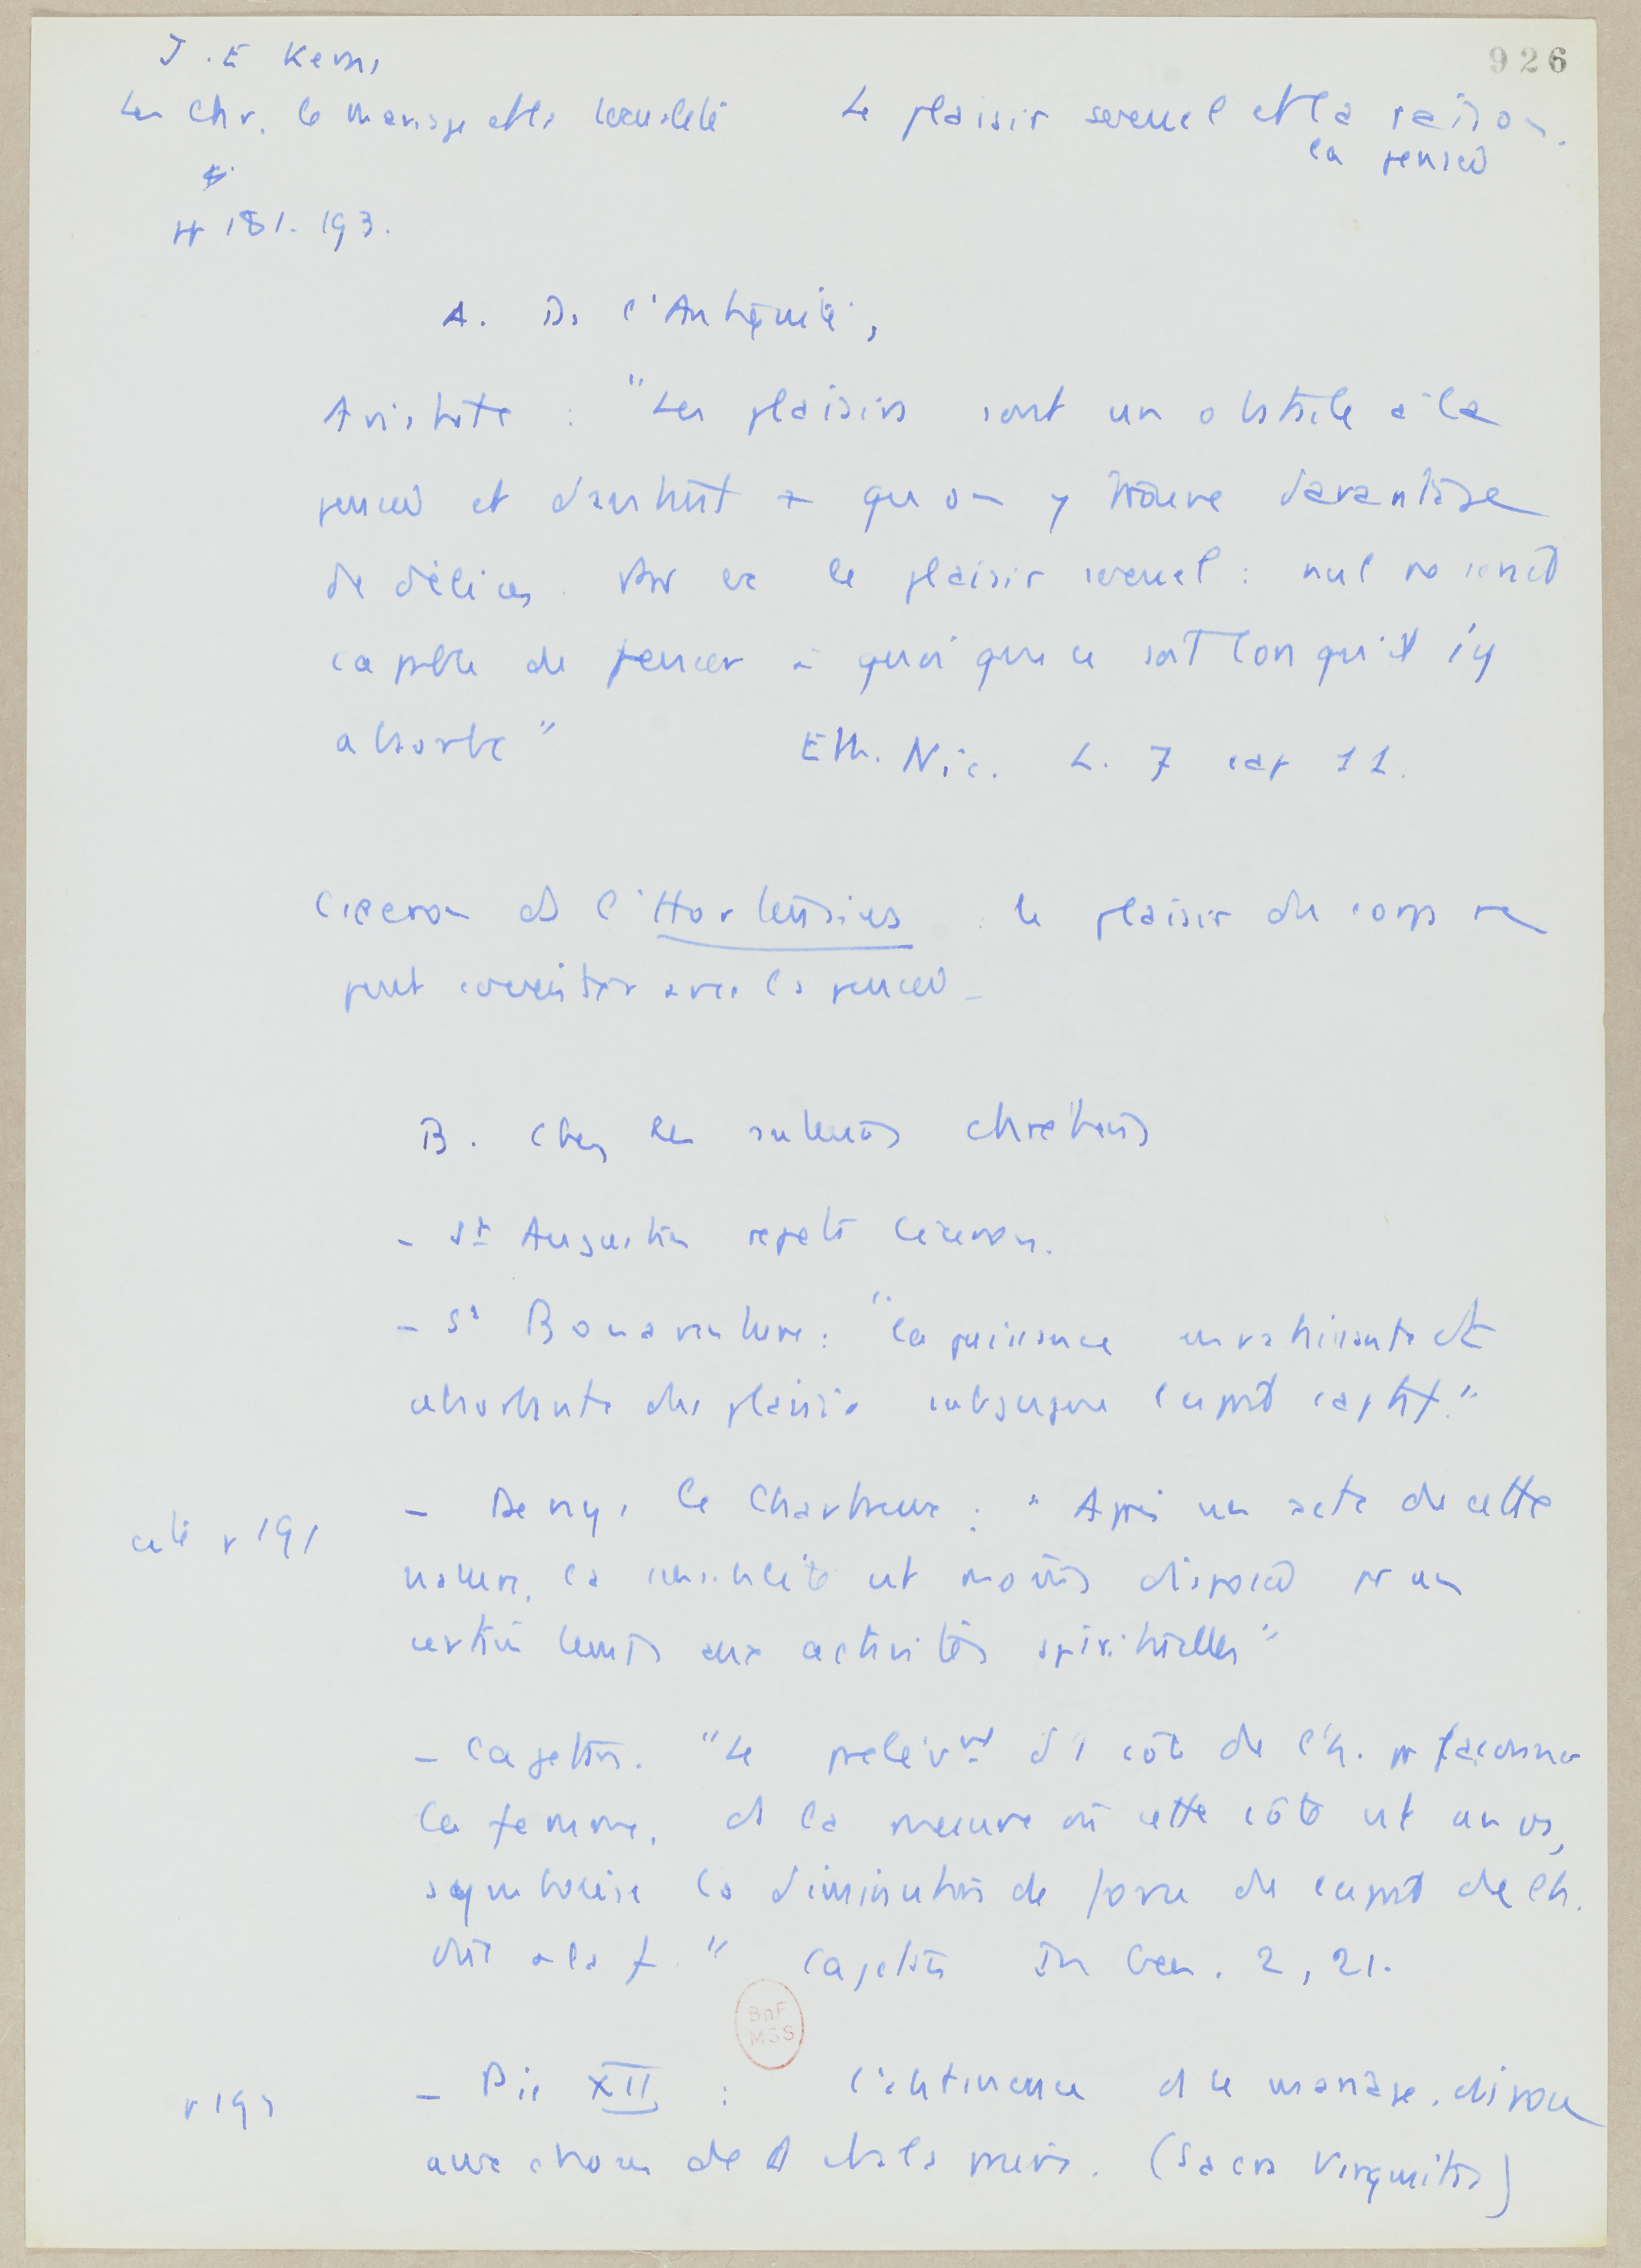 926
J.E Kerns
Les Chr. le mariage et la sexualité
Le plaisir sexuel et la raison.
la pensée
pp 181-193.
A. Ds l'Antiquité,
Aristote : "Les plaisirs sont un obstacle à la
pensée et d'autant + qu'on y trouve davantage
de délices. le plaisir sexuel : nul ne serait
capable de penser à quoi que ce soit lorsqu'il s'y
absorbe" Eth. Nic. L. 7 cap 11.
Ciceron ds l'Hortensius : le plaisir du corps ne
peut coexister avec la pensée.
B. Chez les auteurs chrétiens
- St Augustin repète Ciceron.
- St Bonaventure : "la puissance envahissante et
absorbante du plaisir subjugue l'esprit captif."
cité p 191
- Denys le Chartreux : "Après un acte de cette
nature, la sensibilité est moins disposée pr un
certain temps aux activités spirituelles"
- Cajetan. "Le prélèvmt d'1 côte de l'h. pr façonner
la femme, ds la mesure où cette côte est un os,
symbolise la diminution de force de l'esprit de l'h.
due à la f." Cajetan In Gen. 2, 21.
BnF
MSS
p 193
- Pie XII : l'abstinence ds le mariage, dispose
aux choses de et à la prière. (Sacra Virginitas)